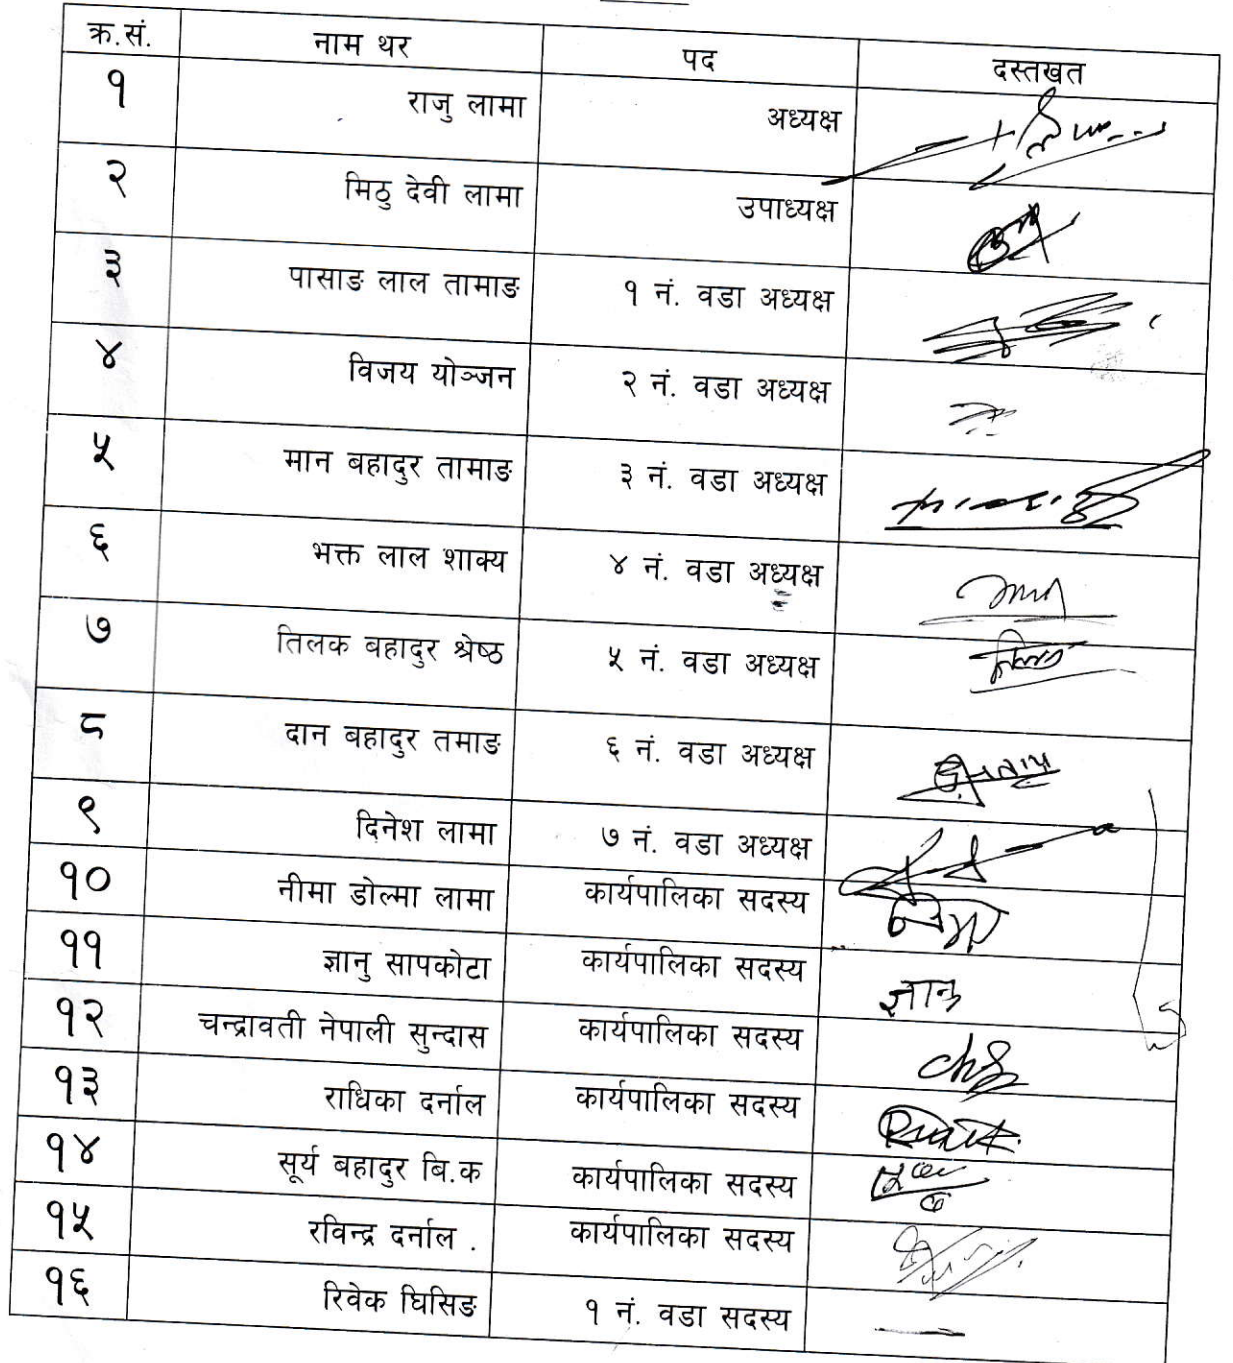 क्र.सं. नाम थर पद दस्तखत
१ राजु लामा अध्यक्ष
२ मिठु देवी लामा उपाध्यक्ष
३ पासाङ लाल तामाङ १ नं. वडा अध्यक्ष
४ विजय योञ्जन २ नं. वडा अध्यक्ष
५ मान बहादुर तामाङ ३ नं. वडा अध्यक्ष
६ भक्त लाल शाक्य ४ नं. वडा अध्यक्ष
७ तिलक बहादुर श्रेष्ठ ५ नं. वडा अध्यक्ष
८ दान बहादुर तमाङ ६ नं. वडा अध्यक्ष
९ दिनेश लामा ७ नं. वडा अध्यक्ष
१० नीमा डोल्मा लामा कार्यपालिका सदस्य
११ ज्ञानु सापकोटा कार्यपालिका सदस्य ज्ञानु
१२ चन्द्रावती नेपाली सुन्दास कार्यपालिका सदस्य
१३ राधिका दर्नाल कार्यपालिका सदस्य
१४ सूर्य बहादुर बि.क कार्यपालिका सदस्य
१५ रविन्द्र दर्नाल . कार्यपालिका सदस्य
१६ रिवेक घिसिङ १ नं. वडा सदस्य